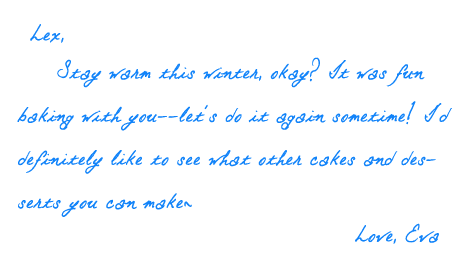 Lex,
Stay warm this winter, okay? It was fun
baking with you--let's do it again sometime! I'd
definitely like to see what other cakes and des-
serts you can make.
Love, Eva